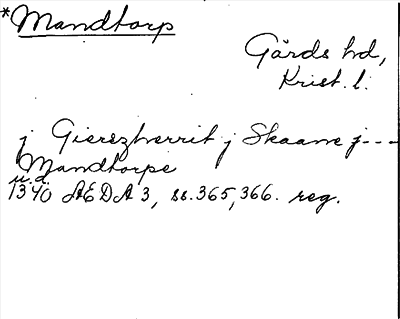 *Mandtorp
Gärds hd,
Krist. l.
j Gierszherrit j Skaane j---
Mandtorpe
u.d.
1340 AEDA 3, ss. 365, 366. reg.